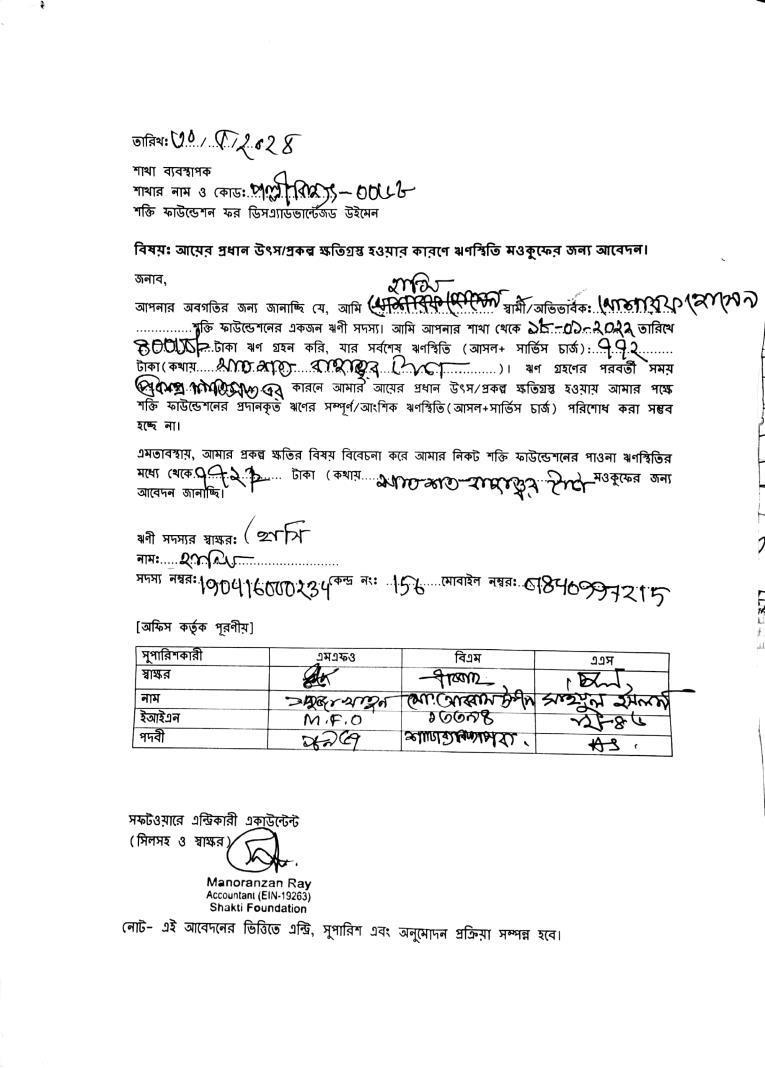 তারিখ:
শাখা ব্যবস্থাপক
শাখার নাম ও কোড:
শক্তি ফাউন্ডেশন ফর ডিসএ্যাডভান্টেজড উইমেন
বিষয়: আয়ের প্রধান উৎস/প্রকল্প ক্ষতিগ্রস্থ হওয়ার কারণে ঋণস্থিতি মওকুফের জন্য আবেদন।
জনাব,
আপনার অবগতির জন্য জানাচ্ছি যে, আমি হাসি স্বামী/অভিভাবক:
শক্তি ফাউন্ডেশনের একজন ঋণী সদস্য। আমি আপনার শাখা থেকে ১৮-০১-২০২২ তারিখে
টাকা ঋণ গ্রহন করি, যার সর্বশেষ ঋণস্থিতি (আসল+ সার্ভিস চার্জ): ৭৭২
টাকা(কথায় সাত শত বাহাত্তুর টাকা)। ঋণ গ্রহণের পরবর্তী সময়
কারনে আমার আয়ের প্রধান উৎস/প্রকল্প ক্ষতিগ্রস্থ হওয়ায় আমার পক্ষে
শক্তি ফাউন্ডেশনের প্রদানকৃত ঋণের সম্পূর্ণ/আংশিক ঋণস্থিতি(আসল+সার্ভিস চার্জ) পরিশোধ করা সম্ভব
হচ্ছে না।
এমতাবস্থায়, আমার প্রকল্প ক্ষতির বিষয় বিবেচনা করে আমার নিকট শক্তি ফাউন্ডেশনের পাওনা ঋণস্থিতির
মধ্যে থেকে ৭৭২ টাকা (কথায় সাত শত বাহাত্তুর টাকা মওকুফের জন্য
আবেদন জানাচ্ছি।
ঋণী সদস্যর স্বাক্ষর: হাসি
নাম: হাসি
সদস্য নম্বর: 190416000234 কেন্দ্র নং: 156 মোবাইল নম্বর: 01840997215
[অফিস কর্তৃক পূরণীয়]
সুপারিশকারী এমএফও বিএম এএস
স্বাক্ষর
নাম
ইআইএন M.F.O
পদবী AS
সফটওয়ারে এন্ট্রিকারী একাউন্টেন্ট
(সিলসহ ও স্বাক্ষর)
Manoranzan Ray
Accountant (EIN-19263)
Shakti Foundation
নোট- এই আবেদনের ভিত্তিতে এন্ট্রি, সুপারিশ এবং অনুমোদন প্রক্রিয়া সম্পন্ন হবে।